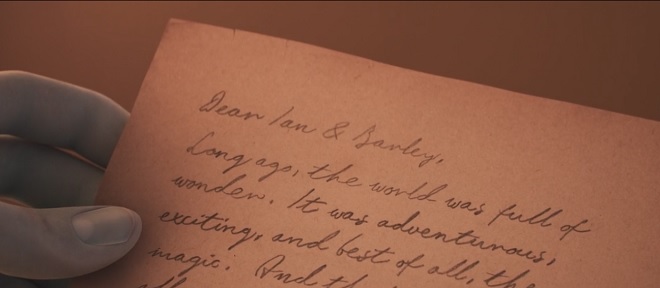 Dear Ian & Barley,
Long ago, the world was full of
wonder. It was adventurous,
exciting, and best of all, the
magic. And th